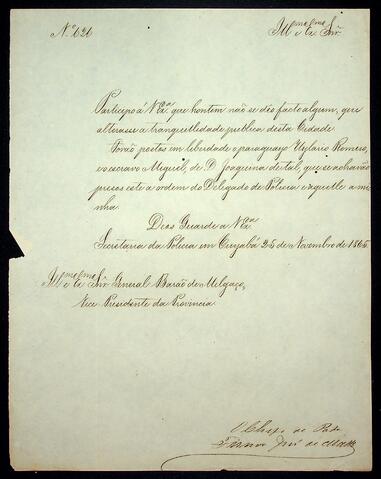 Nº 626
Illmo e Exmo Snr.
Participo á V Exa. que hontem não se deo facto algum, que
alterasse a tranquillidade publica desta Cidade.
Forão postos em liberdade o paraguayo Hylario Romero,
e o escravo Miguel, de D. Joaquina de tal, que se achavão
presos este a ordem do Delegado de Policia e aquelle a mi-
nha.
Deos Guarde a V Exa
Secretaria da Policia em Cuyabá 25 de Novembro de 1865
Illmo e Exmo Snr. General Barão de Melgaço,
Vice Presidente da Provincia
O Chefe de
José de